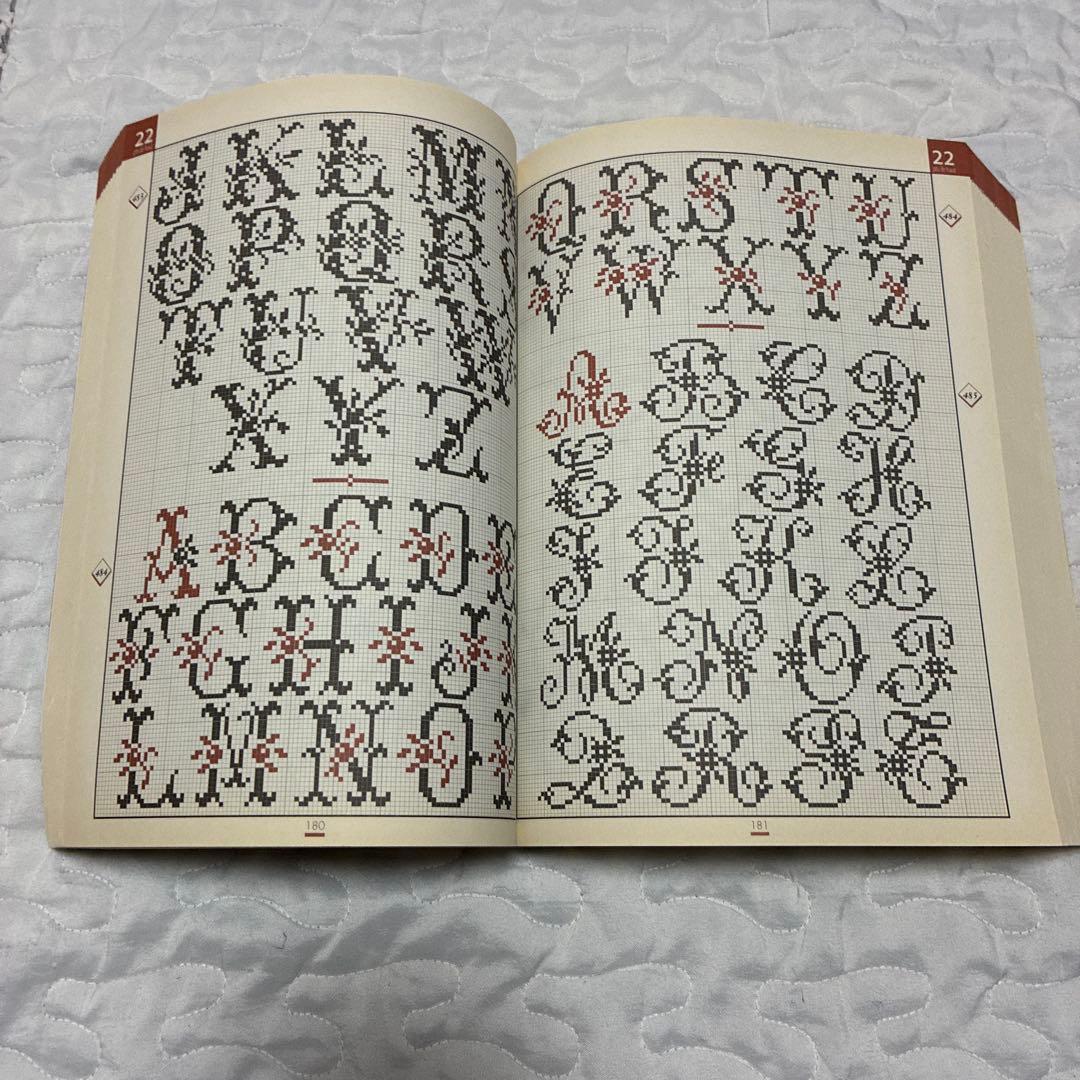 22
483
J K L M
O P Q R
T U V W
X Y Z
484
A B C D E
F G H I J K
L M N O P
180
22
484
Q R S T U
V W X Y Z
485
A B C D
E F G H
I J K L
M N O P
Q R S T
181